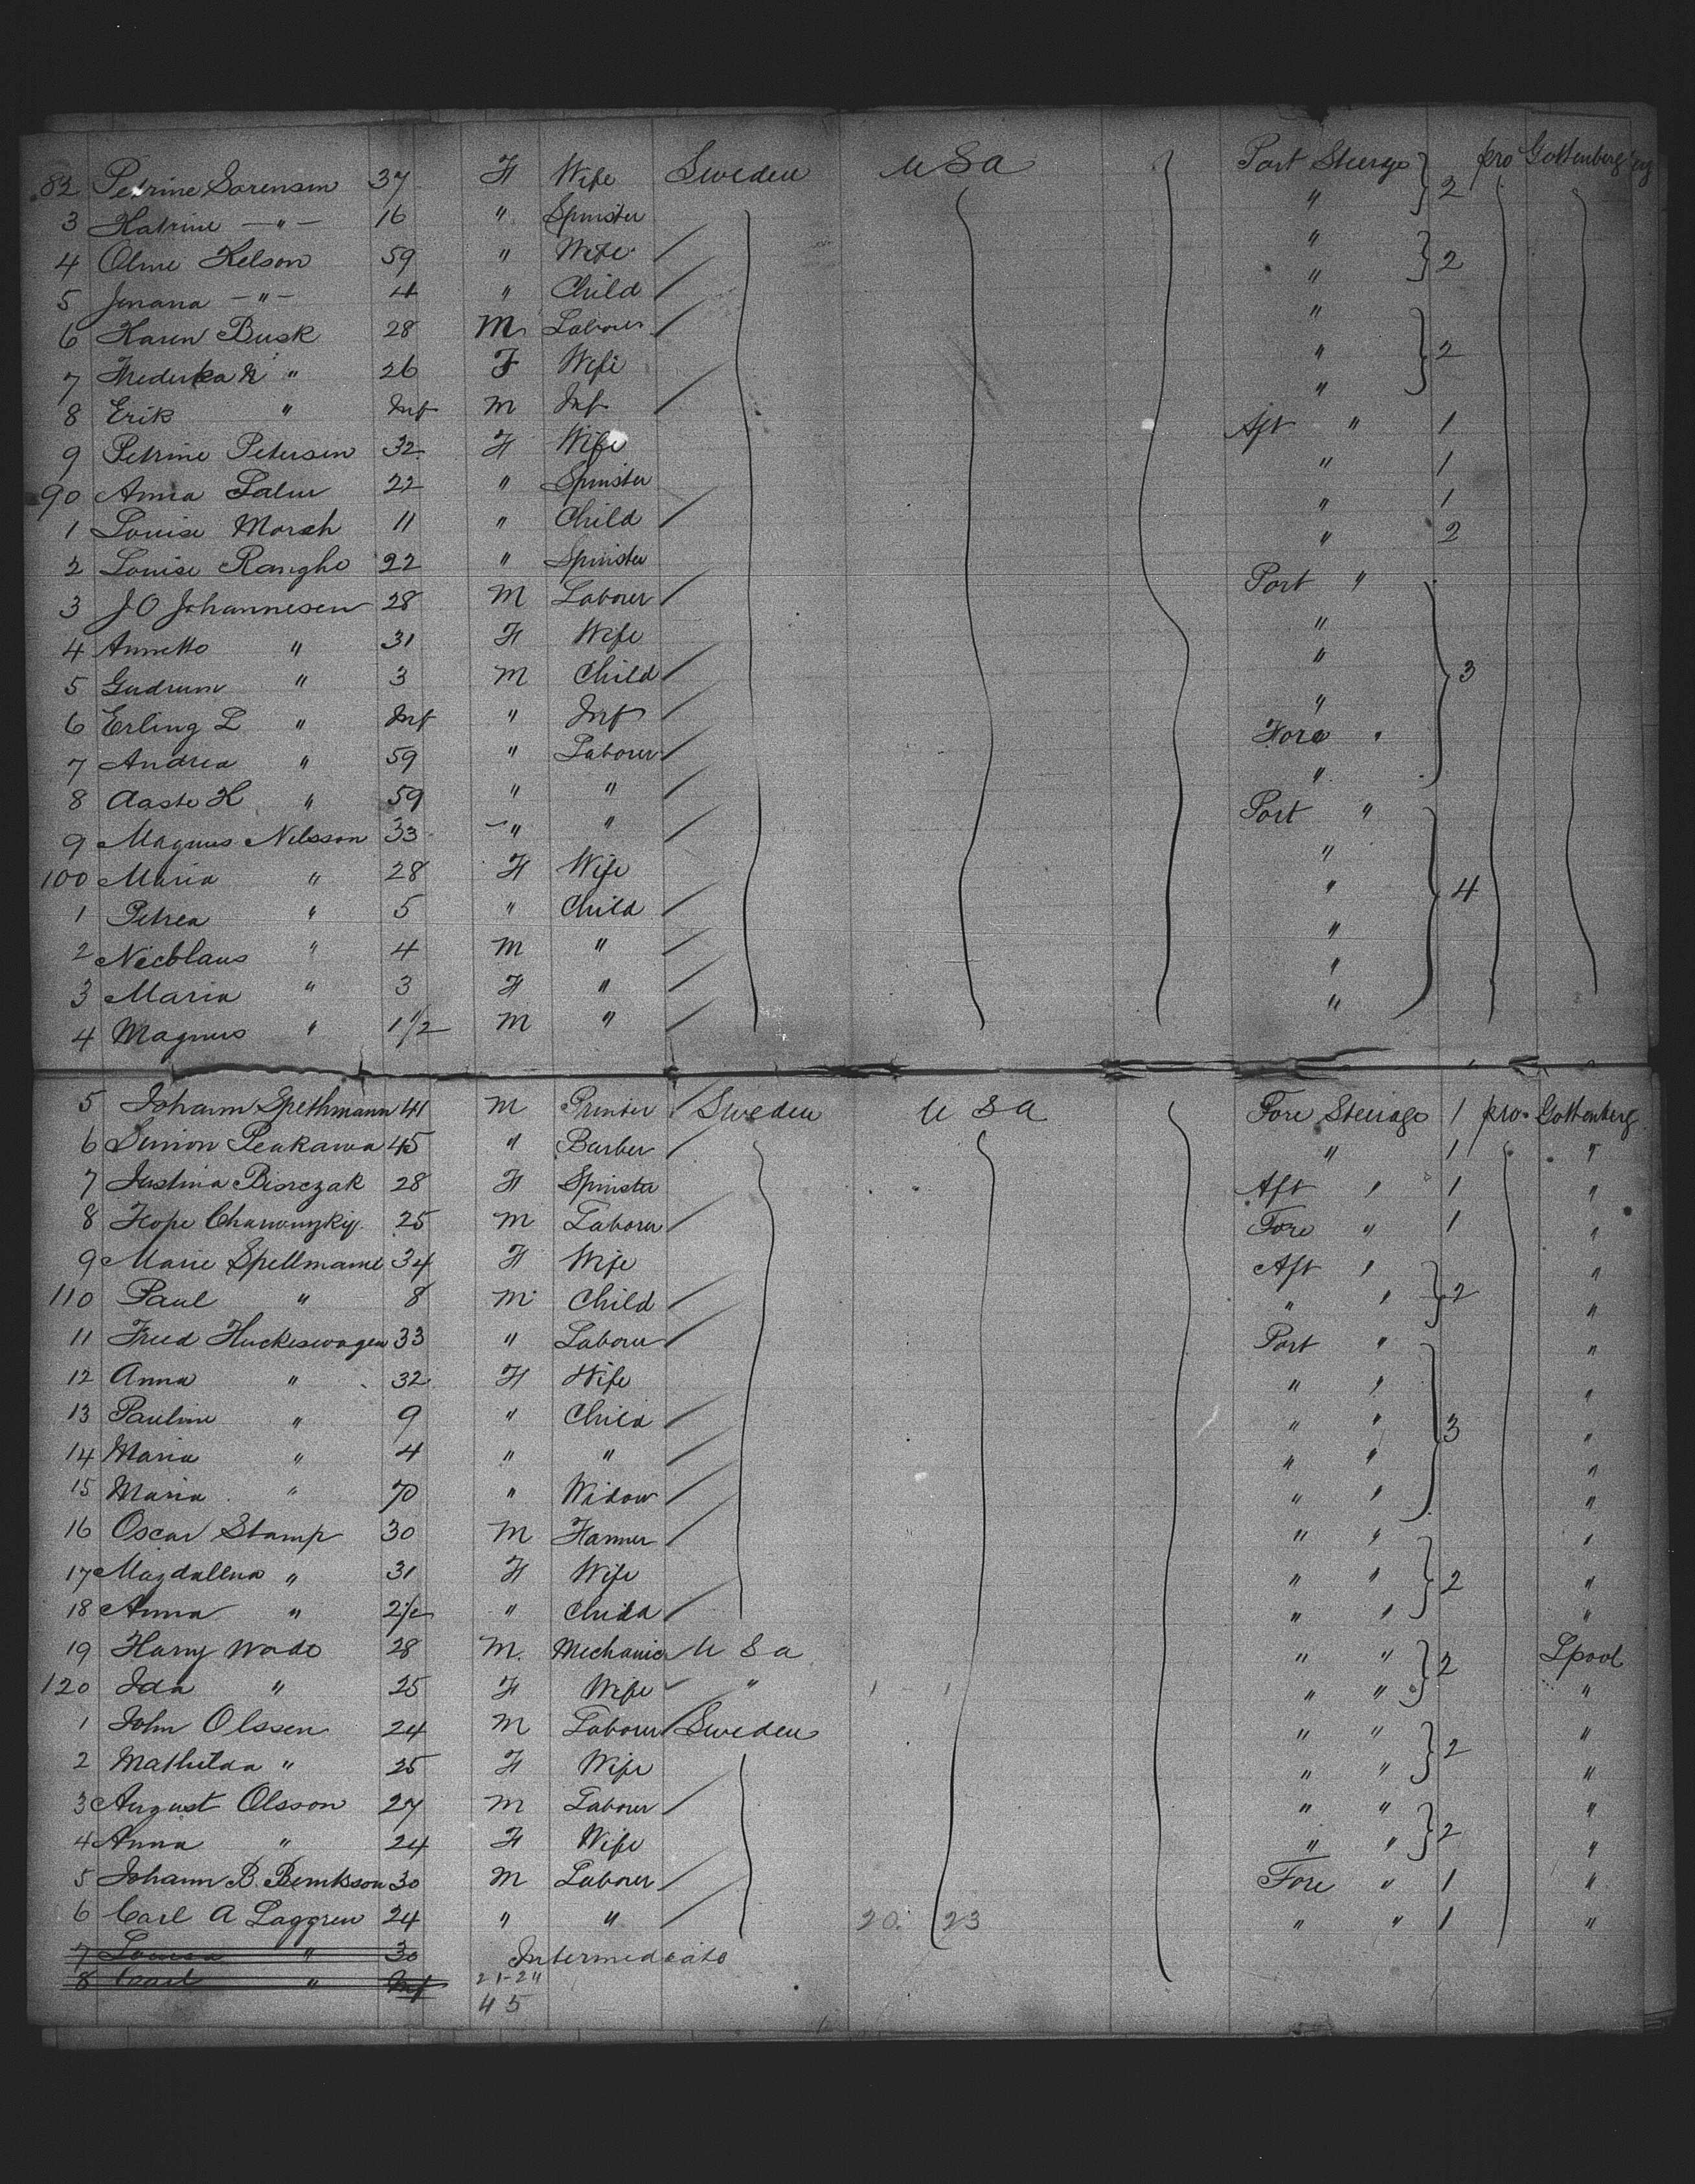 82 Petrine Sorensen 37 F Wife Sweden U S a Port Steerage 2 pro Gottenberg
3 Katrine —"— 16 " Spinster "
4 Oline Kelson 59 " Wife " 2
5 Jenana —"— 4 " Child "
6 Karen Busk 28 M Laborer "
7 Frederika " 26 F Wife " 2
8 Erik " Inf M Inf "
9 Petrine Petersen 32 F Wife Aft " 1
90 Anna 22 " Spinster " 1
1 Louise Morch 11 " Child " 1
2 Louise Ranghe 22 " Spinster " 2
3 J O Johannesen 28 M Laborer Port "
4 Annetto " 31 F Wife "
5 Gudrum " 3 M Child " 3
6 Erling L " Inf " Inf "
7 Andrea " 59 " Laborer Fore "
8 Aaste K " 59 " " "
9 Magnus Nilsson 33 " " Port "
100 Maria " 28 F Wife "
1 Petrea " 5 " Child " 4
2 Nicklaus " 4 M " "
3 Maria " 3 F " "
4 Magnus " 1 1/2 M " "
5 Johann Spethmann 41 M Printer Sweden U S a Fore Steerage 1 pro Gottenberg
6 Simon Peakawa 45 " Barber " 1 "
7 Justina Bisrczak 28 F Spinster Aft " 1 "
8 25 M Laborer Fore " 1 "
9 Marie Spellmann 34 F Wife Aft " "
110 Paul " 8 M Child " " 2 "
11 Fried Huckeswagen 33 " Laborer Port " "
12 Anna " 32 F Wife " " "
13 Pauline " 9 " Child " " 3 "
14 Maria " 4 " " " " "
15 Maria " 70 " Widow " " "
16 Oscar Stamp 30 M Farmer " " "
17 Magdallena " 31 F Wife " " 2 "
18 Anna " 2 1/2 " Child " " "
19 Harry Wade 28 M. Mechanic U S a " " 2 Lpool
120 Ida " 25 F Wife " " " "
1 John Olssen 24 M Laborer Sweden " " "
2 Mathilda " 25 F Wife " " 2 "
3 August Olsson 27 M Laborer " " "
4 Anna " 24 F Wife " " 2 "
5 Johann B. Berntsson 30 M Laborer Fore " 1 "
6 Carl A Laggren 24 " " 20. 23 " " 1 "
7 Louisa " 30 Intermediate
8 Carl " Inf 21-24
45